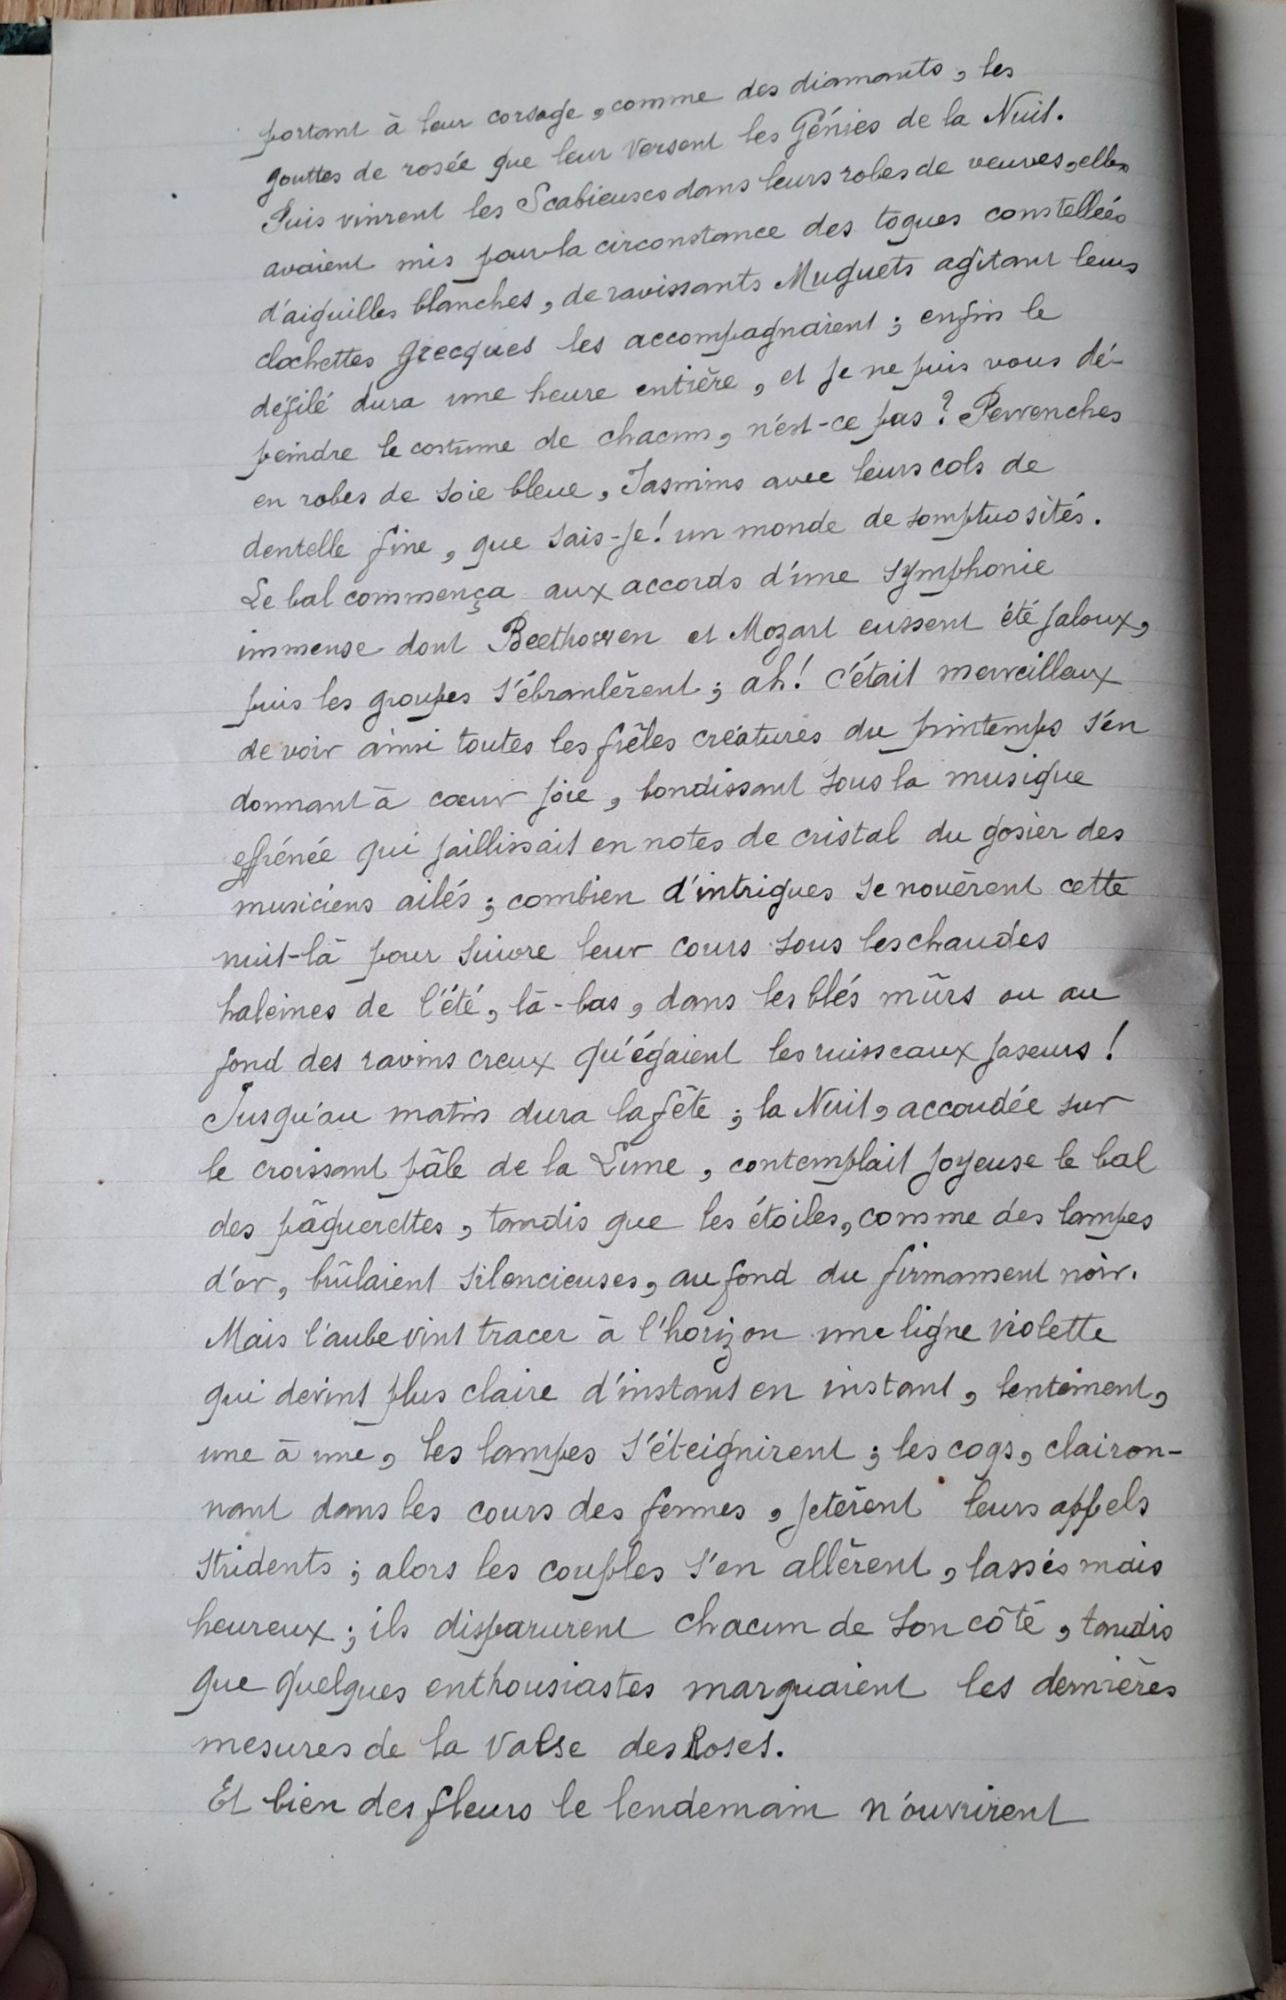 portant à leur corsage, comme des diamants, les
gouttes de rosée que leur versent les Génies de la Nuit.
Puis vinrent les Scabieuses dans leurs robes de veuves, elles
avaient mis pour la circonstance des toques constellées
d'aiguilles blanches, de ravissants Muguets agitant leurs
clochettes grecques les accompagnaient ; enfin le
défilé dura une heure entière, et je ne puis vous dé-
peindre le costume de chacun, n'est-ce pas ? Pervenches
en robes de soie bleue, Jasmins avec leurs cols de
dentelle fine, que sais-je ! un monde de somptuosités.
Le bal commença aux accords d'une symphonie
immense dont Beethowen et Mozart eussent été jaloux,
puis les groupes s'ébranlèrent ; ah ! c'était merveilleux
de voir ainsi toutes les frêles créatures du printemps s'en
donnant à cœur joie, bondissant sous la musique
effrénée qui jaillissait en notes de cristal du gosier des
musiciens ailés ; combien d'intrigues se nouèrent cette
nuit-là pour suivre leur cours sous les chaudes
haleines de l'été, là-bas, dans les blés mûrs ou au
fond des ravins creux qu'égaient les ruisseaux jaseurs !
Jusqu'au matin dura la fête ; la Nuit, accoudée sur
le croissant pâle de la Lune, contemplait joyeuse le bal
des pâquerettes, tandis que les étoiles, comme des lampes
d'or, brûlaient silencieuses, au fond du firmament noir.
Mais l'aube vint tracer à l'horizon une ligne violette
qui devint plus claire d'instant en instant, lentement,
une à une, les lampes s'éteignirent ; les coqs, clairon-
nant dans les cours des fermes, jetèrent leurs appels
stridents ; alors les couples s'en allèrent, lassés mais
heureux ; ils disparurent chacun de son côté, tandis
que quelques enthousiastes marquaient les dernières
mesures de la valse des Roses.
Et bien des fleurs le lendemain n'ouvrirent